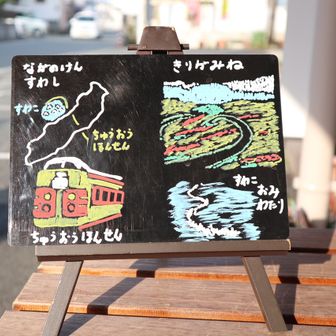 ながのけん
すわし
すわこ
ちゅうおう
ほんせん
ちゅうおうほんせん
きりがみね
すわこ
おみ
わたり